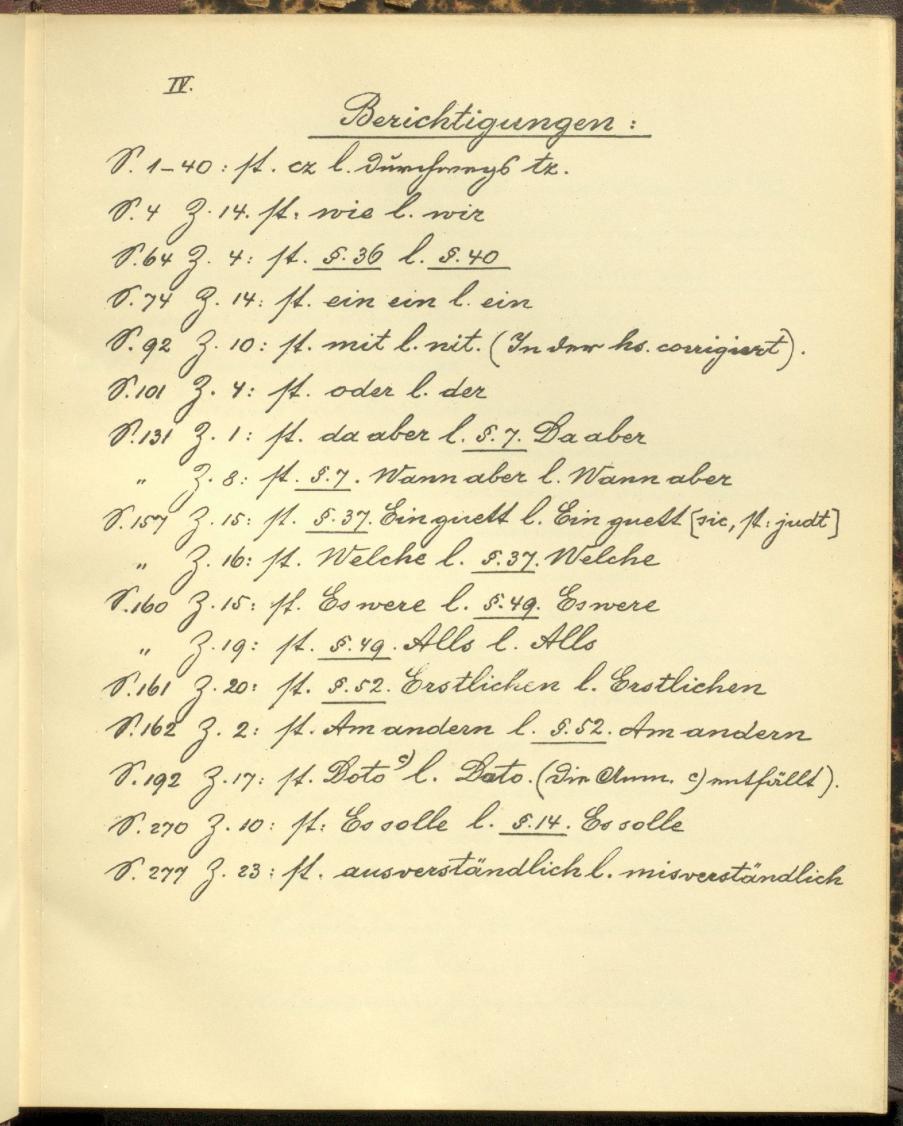 IV.
Berichtigungen :
S. 1-40 : st. cz l. durchwegs tz.
S. 4 Z. 14. st. wie l. wir
S. 64 Z. 4: st. §. 36 l. §. 40
S. 74 Z. 14: st. ein ein l. ein
S. 92 Z. 10: st. mit l. nit. (In der hs. corrigiert).
S. 101 Z. 4: st. oder l. der
S. 131 Z. 1: st. da aber l. §. 7. Da aber
„ Z. 8: st. §. 7. Wann aber l. Wann aber
S. 157 Z. 15: st. §. 37. Ein guett l. Ein guett [sic, st: judt]
„ Z. 16: st. Welche l. §. 37. Welche
S. 160 Z. 15: st. Es were l. §. 49. Es were
„ Z. 19: st. §. 49. Alls l. Alls
S. 161 Z. 20: st. §. 52. Erstlichen l. Erstlichen
S. 162 Z. 2: st. Am andern l. §. 52. Am andern
S. 192 Z. 17: st. Doto c) l. Dato. (Die Anm. c) entfällt).
S. 270 Z. 10: st: Es solle l. §. 14. Es solle
S. 277 Z. 23: st. ausverständlich l. misverständlich